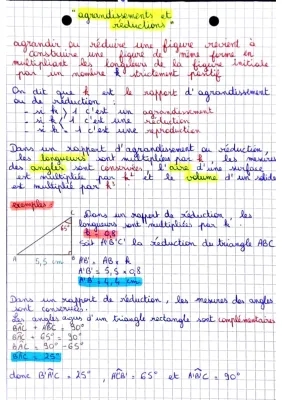 "agrandissements et
réductions"
agrandir ou réduire une figure revient à
construire une figure de même forme en
multipliant les longueurs de la figure initiale
par un nombre k strictement positif
On dit que k est le rapport d'agrandissement
ou de réduction :
- si k > 1 c'est un agrandissement
- si k < 1 c'est une réduction
- si k = 1 c'est une reproduction
Dans un rapport d'agrandissement ou réduction,
les longueurs sont multipliées par k, les mesures
des angles sont conservées, l'aire d'une surface
est multipliée par k² et le volume d'un solide
est multiplié par k³
exemples
C
65°
A
B
5,5 cm
Dans un rapport de réduction, les
longueurs sont multipliées par k
k = 0,8
soit A'B'C' la réduction du triangle ABC
A'B' = AB × k
A'B' = 5,5 × 0,8
A'B' = 4,4 cm
Dans un rapport de réduction, les mesures des angles
sont conservées.
Les angles aigus d'un triangle rectangle sont complémentaires
BAC + ABC = 90°
BAC + 65° = 90°
BAC = 90° - 65°
BAC = 25°
donc B'A'C' = 25°, A'C'B' = 65° et A'B'C' = 90°